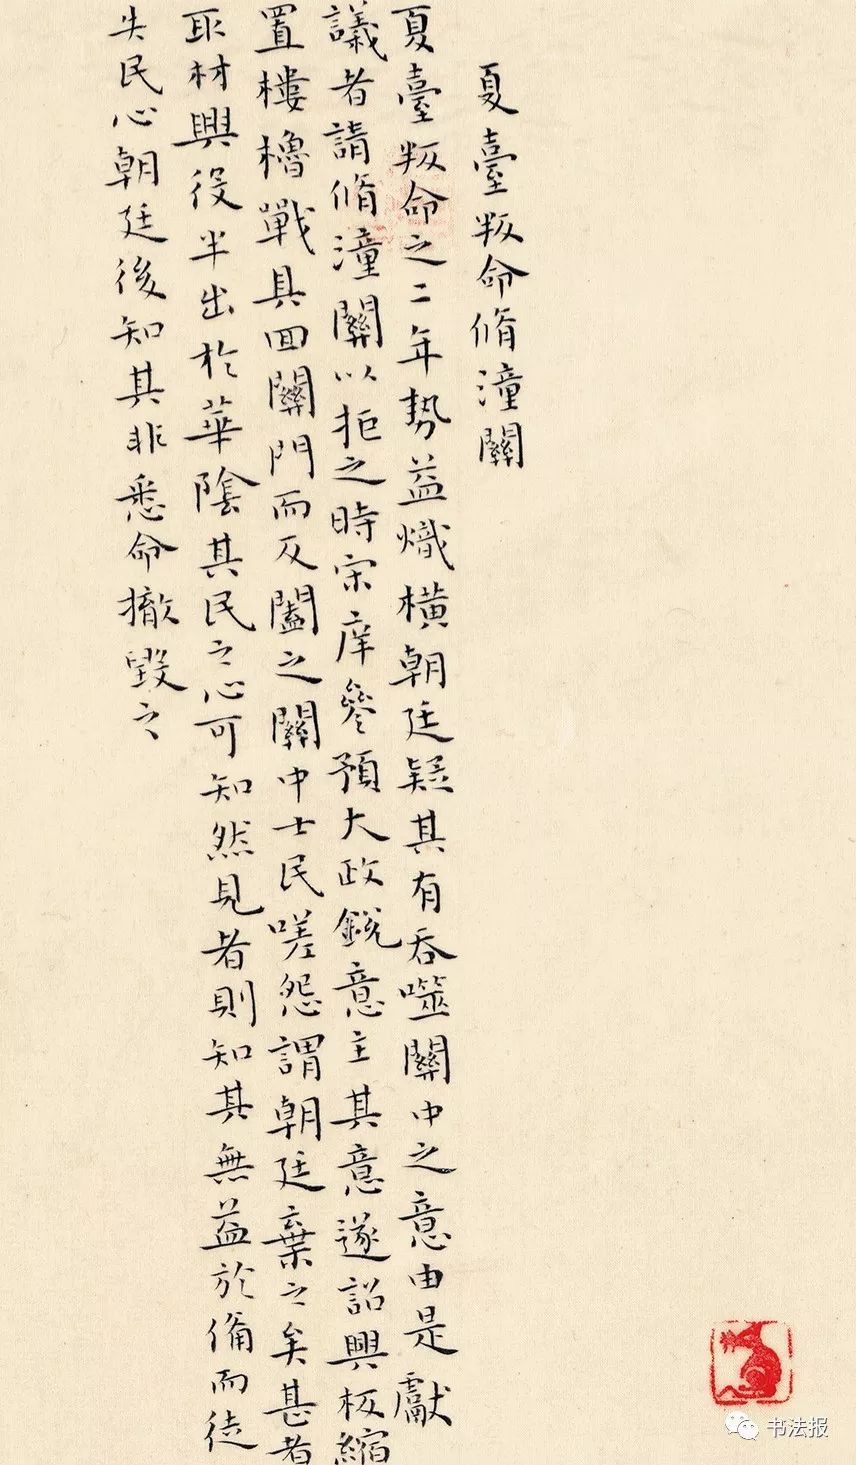 夏臺叛命脩潼關
夏臺叛命之二年勢益熾橫朝廷疑其有吞噬關中之意由是獻
議者請脩潼關以拒之時宋庠參預大政銳意主其意遂詔興板縮
置樓櫓戰具囬關門而反闔之關中士民嗟怨謂朝廷棄之矣甚者
取材興役半出於華陰其民之心可知然見者則知其無益於備而徒
失民心朝廷後知其非悉命撤毀之
书法报